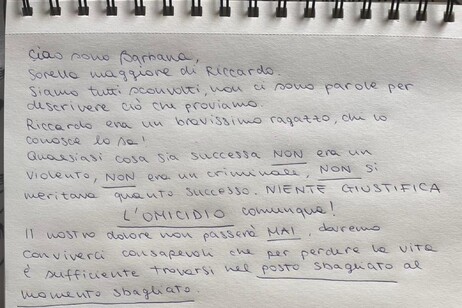 Ciao sono Barbara,
Sorella maggiore di Riccardo.
Siamo tutti sconvolti, non ci sono parole per
descrivere ciò che proviamo.
Riccardo era un bravissimo ragazzo, chi lo
conosce lo sa!
Qualsiasi cosa sia successa NON era un
violento, NON era un criminale, NON si
meritava quanto successo. NIENTE GIUSTIFICA
L'OMICIDIO comunque!
Il nostro dolore non passerà MAI, daremo
conviverci consapevoli che per perdere la vita
è sufficiente trovarsi nel posto sbagliato al
momento sbagliato.